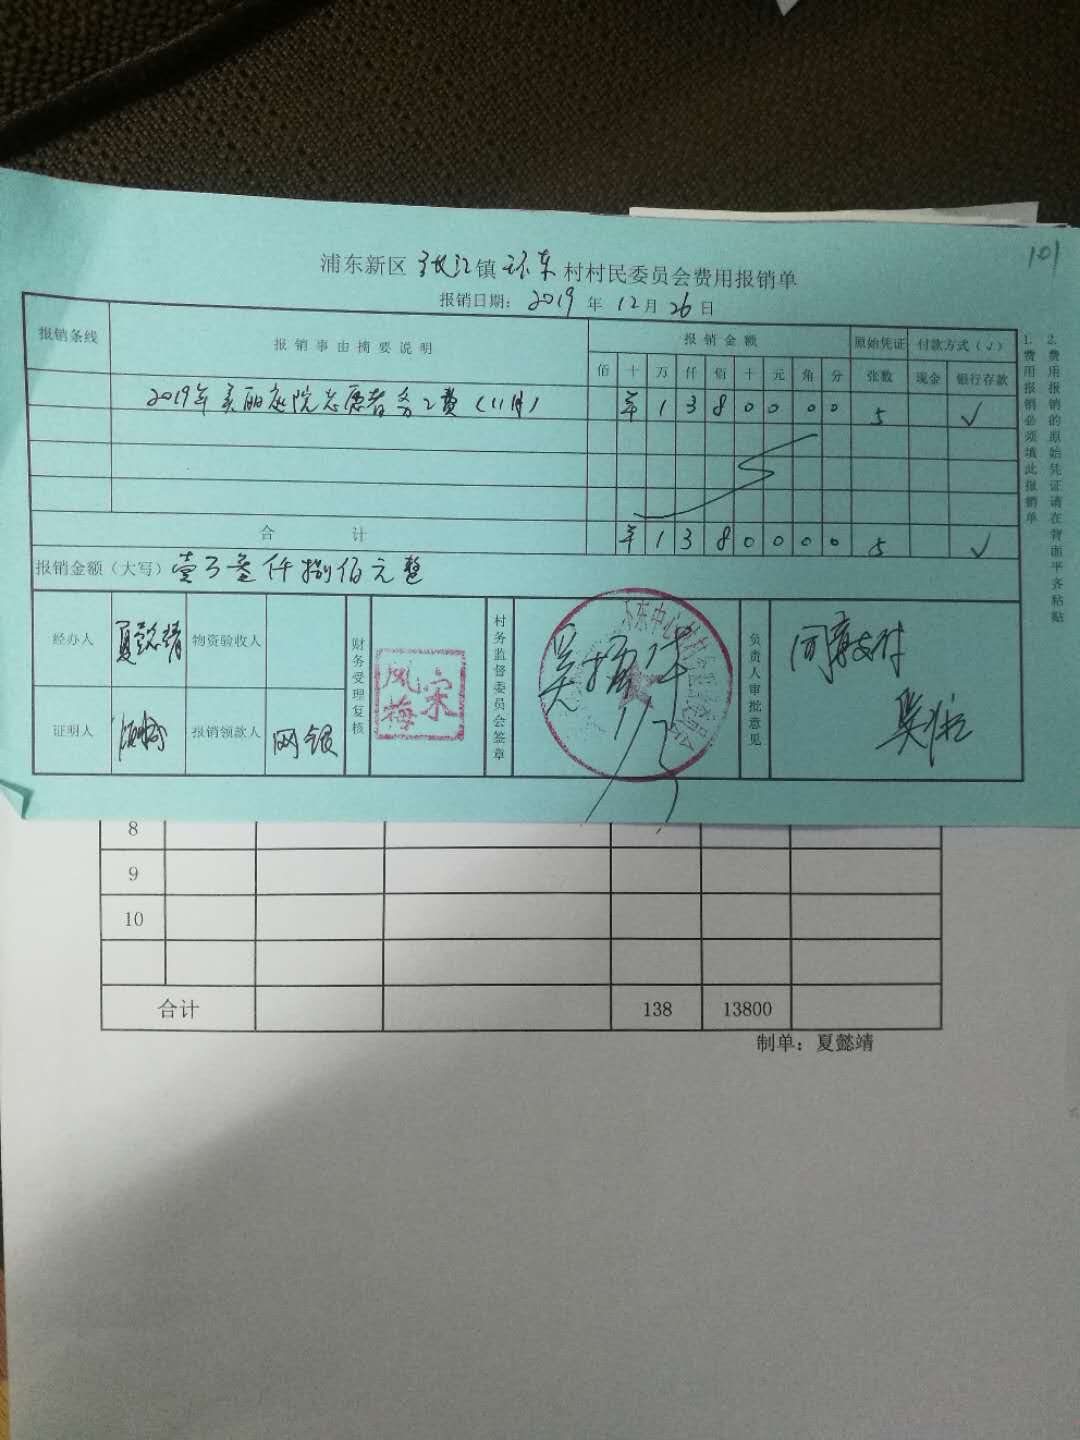 101
浦东新区 张江 镇 环东 村村民委员会费用报销单
报销日期： 2019 年 12 月 26 日
报销条线 报销事由摘要说明 报销金额 原始凭证 付款方式（√）
佰 十 万 仟 佰 十 元 角 分 张数 现金 银行存款
2019年美丽庭院志愿者务工费（11月） ¥ 1 3 8 0 0 0 0 5 √
合计 ¥ 1 3 8 0 0 0 0 5 √
报销金额（大写） 壹万叁仟捌佰元整
经办人 夏懿靖 物资验收人
证明人 报销领款人 网银
财务受理复核
宋凤梅
村务监督委员会签章
负责人审批意见
同意支付
1.费用报销必须填此报销单
2.费用报销的原始凭证请在背面平齐粘贴
8
9
10
合计 138 13800
制单：夏懿靖